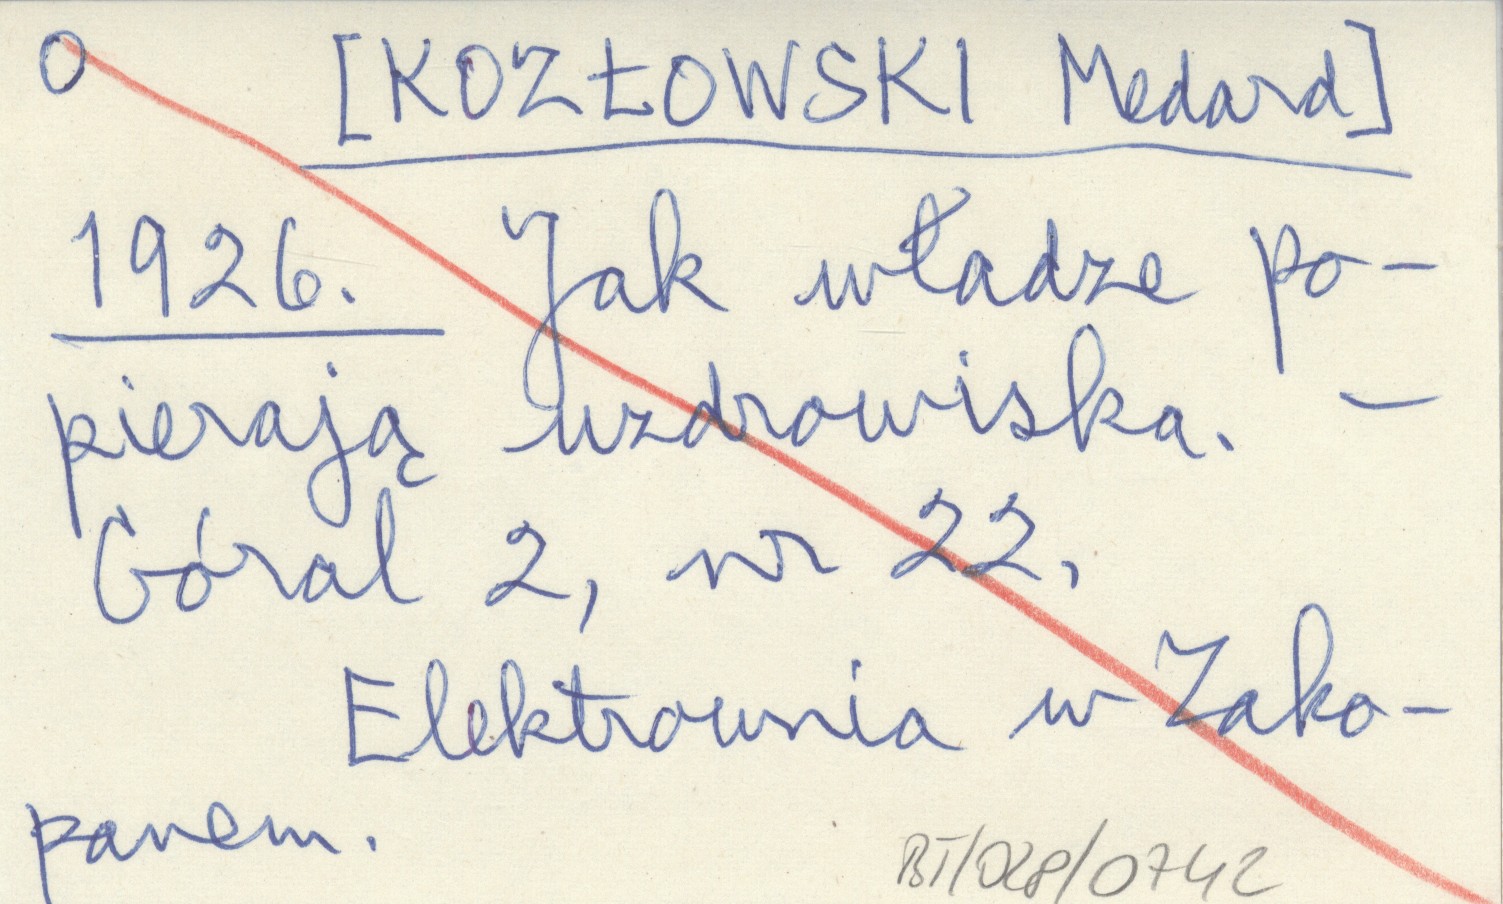 O [KOZŁOWSKI Medard]
1926. Jak władze po-
pierają uzdrowiska. –
Góral 2, nr 22,
Elektrownia w Zako-
panem.
BT/028/0742